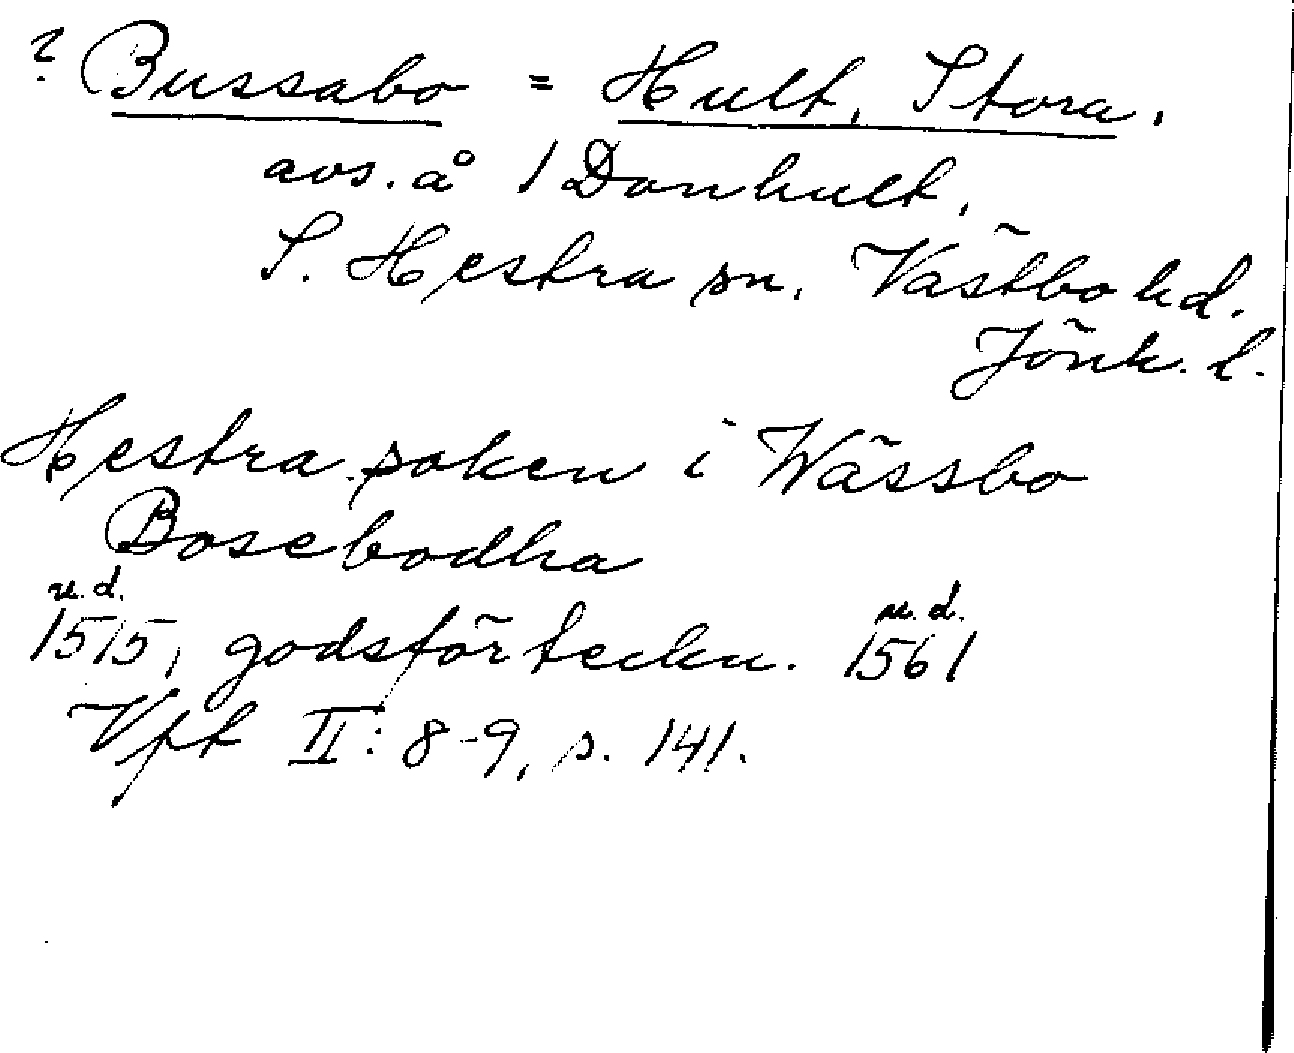 ? Bussabo = Hult, Stora.
avs. å 1 Donhult,
S. Hestra sn, Västbo hd.
Jönk. l.
Hestra soken i Wässbo
Bosebodha
u.d. u.d.
1515, godsförteckn. 1561
Vpk II: 8-9, s. 141.